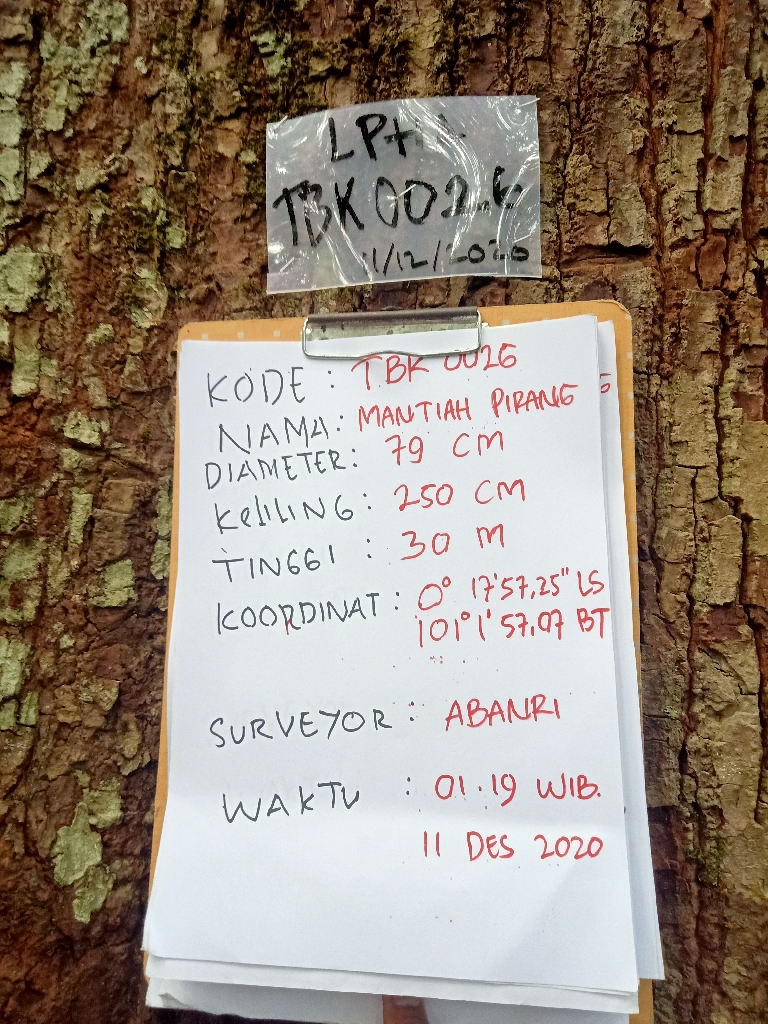 TBK 0026
11/12/2020
KODE : TBK 0026
NAMA : MANTIAH PIRANG
DIAMETER : 79 CM
KELILING : 250 CM
TINGGI : 30 M
KOORDINAT : 0° 17'57,25" LS
101° 1' 57,07 BT
SURVEYOR : ABANRI
WAKTU : 01.19 WIB.
11 DES 2020